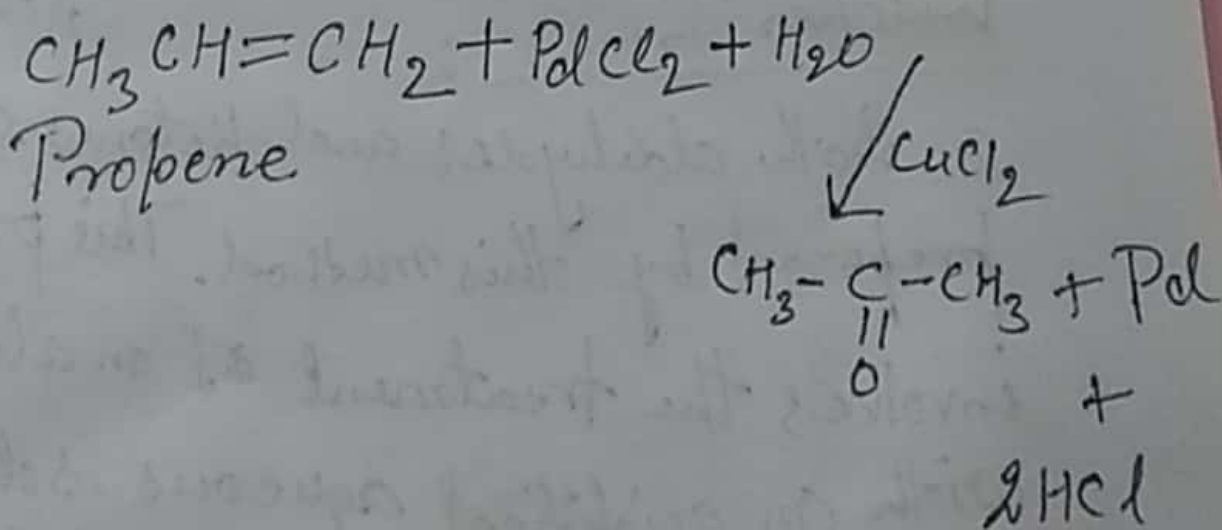 CH₃CH=CH₂ + PdCl₂ + H₂O
Propene
CuCl₂
CH₃-C-CH₃ + Pd
||
O
+
2HCl